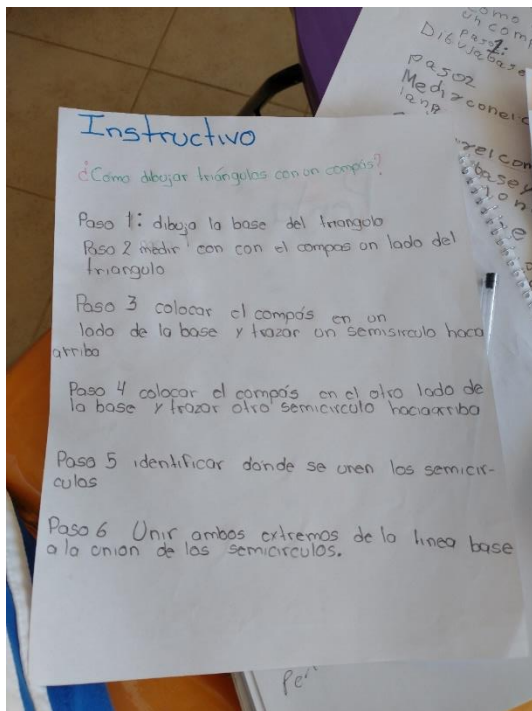 Instructivo
¿Como dibujar triángulos con un compás?
Paso 1: dibuja la base del triangulo
Paso 2 medir con con el compas un lado del
triangulo
Paso 3 colocar el compás en un
lado de la base y trazar un semisirculo haca
arriba
Paso 4 colocar el compás en el otro lado de
la base y trazar otro semicirculo haciaarriba
Paso 5 identificar donde se unen los semicir-
culos
Paso 6 Unir ambos extremos de la linea base
a la union de los semicirculos.
Paso2